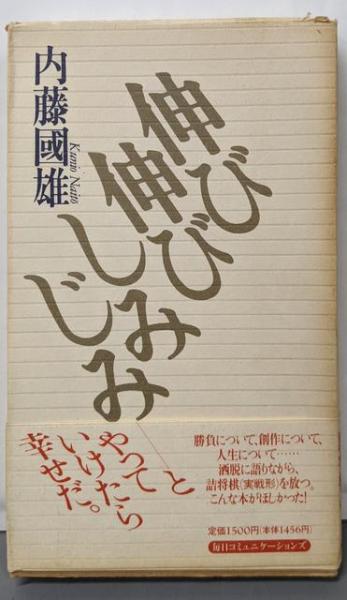 内藤國雄
Kunio Naito
伸び
伸び
しみ
じみ
と
やって
いけたら
幸せだ。
勝負について、創作について、
人生について……
洒脱に語りながら、
詰将棋(実戦形)を放つ。
こんな本がほしかった!
定価1500円(本体1456円)
毎日コミュニケーションズ